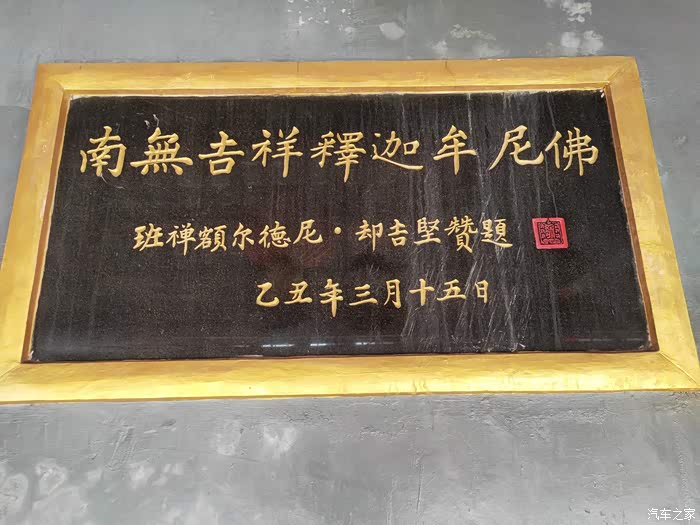 南無吉祥釋迦牟尼佛
班禅額尔德尼·却吉坚贊題
乙丑年三月十五日
汽车之家